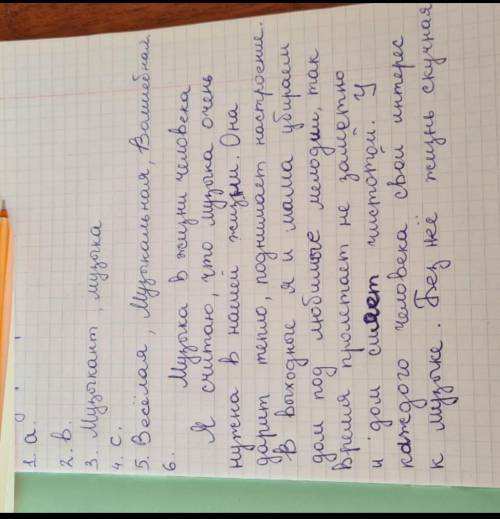 1. а.
2. в.
3. Музыкант, музыка
4. с.
5. Весёлая, Музыкальная, Волшебная
6.
Музыка в жизни человека
Я считаю, что музыка очень
нужна в нашей жизни. Она
дарит тепло, поднимает настроение.
В выходные я и мама убираем
дом под любимые мелодии, так
время пролетает не заметно
и дом сияет чистотой. У
каждого человека свой интерес
к музыке. Без неё жизнь скучная